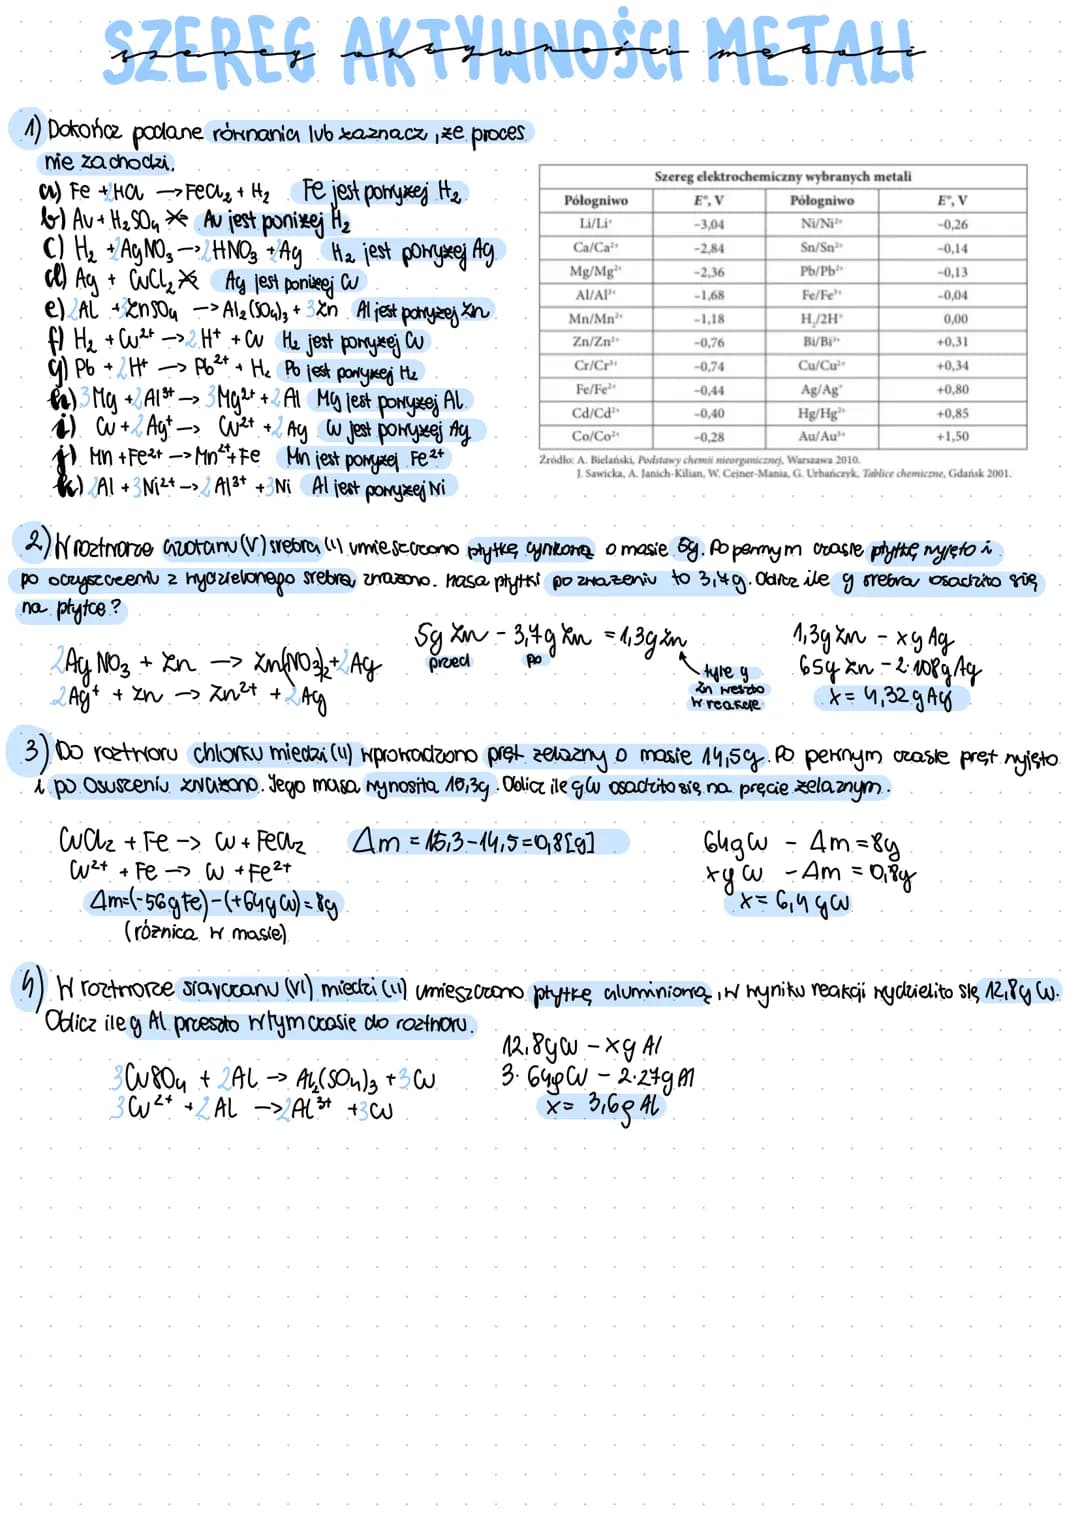 SZEREG AKTYWNOŚCI METALI
szereg aktywności metali
1) Dokończ podane równania lub zaznacz, że proces
nie zachodzi.
a) Fe + 2HCl → FeCl₂ + H₂ Fe jest powyżej H₂
b) Au + H₂SO₄ ↛ Au jest poniżej H₂
c) H₂ + 2AgNO₃ → 2HNO₃ + 2Ag H₂ jest powyżej Ag
d) Ag + CuCl₂ ↛ Ag jest poniżej Cu
e) 2Al + 3ZnSO₄ → Al₂(SO₄)₃ + 3Zn Al jest powyżej Zn
f) H₂ + Cu²⁺ → 2H⁺ + Cu H₂ jest powyżej Cu
g) Pb + 2H⁺ → Pb²⁺ + H₂ Pb jest powyżej H₂
h) 3Mg + 2Al³⁺ → 3Mg²⁺ + 2Al Mg jest powyżej Al
i) Cu + 2Ag⁺ → Cu²⁺ + 2Ag Cu jest powyżej Ag
j) Mn + Fe²⁺ → Mn²⁺ + Fe Mn jest powyżej Fe²⁺
k) 2Al + 3Ni²⁺ → 2Al³⁺ + 3Ni Al jest powyżej Ni
Szereg elektrochemiczny wybranych metali
Półogniwo E°, V Półogniwo E°, V
Li/Li⁺ −3,04 Ni/Ni²⁺ −0,26
Ca/Ca²⁺ −2,84 Sn/Sn²⁺ −0,14
Mg/Mg²⁺ −2,36 Pb/Pb²⁺ −0,13
Al/Al³⁺ −1,68 Fe/Fe³⁺ −0,04
Mn/Mn²⁺ −1,18 H₂/2H⁺ 0,00
Zn/Zn²⁺ −0,76 Bi/Bi³⁺ +0,31
Cr/Cr³⁺ −0,74 Cu/Cu²⁺ +0,34
Fe/Fe²⁺ −0,44 Ag/Ag⁺ +0,80
Cd/Cd²⁺ −0,40 Hg/Hg²⁺ +0,85
Co/Co²⁺ −0,28 Au/Au³⁺ +1,50
Źródło: A. Bielański, Podstawy chemii nieorganicznej, Warszawa 2010.
J. Sawicka, A. Janich-Kilian, W. Cejner-Mania, G. Urbańczyk, Tablice chemiczne, Gdańsk 2001.
2) W roztworze azotanu(V) srebra(I) umieszczono płytkę cynkową o masie 5g. Po pewnym czasie płytkę wyjęto i
po oczyszczeniu z wydzielonego srebra, zważono. Masa płytki po zważeniu to 3,7g. Oblicz ile g srebra osadziło się
na płytce?
2AgNO₃ + Zn → Zn(NO₃)₂ + 2Ag
2Ag⁺ + Zn → Zn²⁺ + 2Ag
5g Zn - 3,7g Zn = 1,3g Zn
przed po
tyle g
Zn weszło
w reakcje
1,3g Zn - x g Ag
65g Zn - 2·108g Ag
x = 4,32 g Ag
3) Do roztworu chlorku miedzi(II) wprowadzono pręt żelazny o masie 14,5g. Po pewnym czasie pręt wyjęto
i po osuszeniu zważono. Jego masa wynosiła 15,3g. Oblicz ile g Cu osadziło się na pręcie żelaznym.
CuCl₂ + Fe → Cu + FeCl₂
Cu²⁺ + Fe → Cu + Fe²⁺
Δm=(-56g Fe)-(+64g Cu) = 8g
(różnica w masie)
Δm = 15,3-14,5=0,8[g]
64g Cu - Δm = 8g
x g Cu - Δm = 0,8g
x = 6,4 g Cu
4) W roztworze siarczanu(VI) miedzi(II) umieszczono płytkę aluminiową, w wyniku reakcji wydzieliło się 12,8g Cu.
Oblicz ile g Al przeszło w tym czasie do roztworu.
3CuSO₄ + 2Al → Al₂(SO₄)₃ + 3Cu
3Cu²⁺ + 2Al → 2Al³⁺ + 3Cu
12,8g Cu - x g Al
3·64g Cu - 2·27g Al
x = 3,6g Al